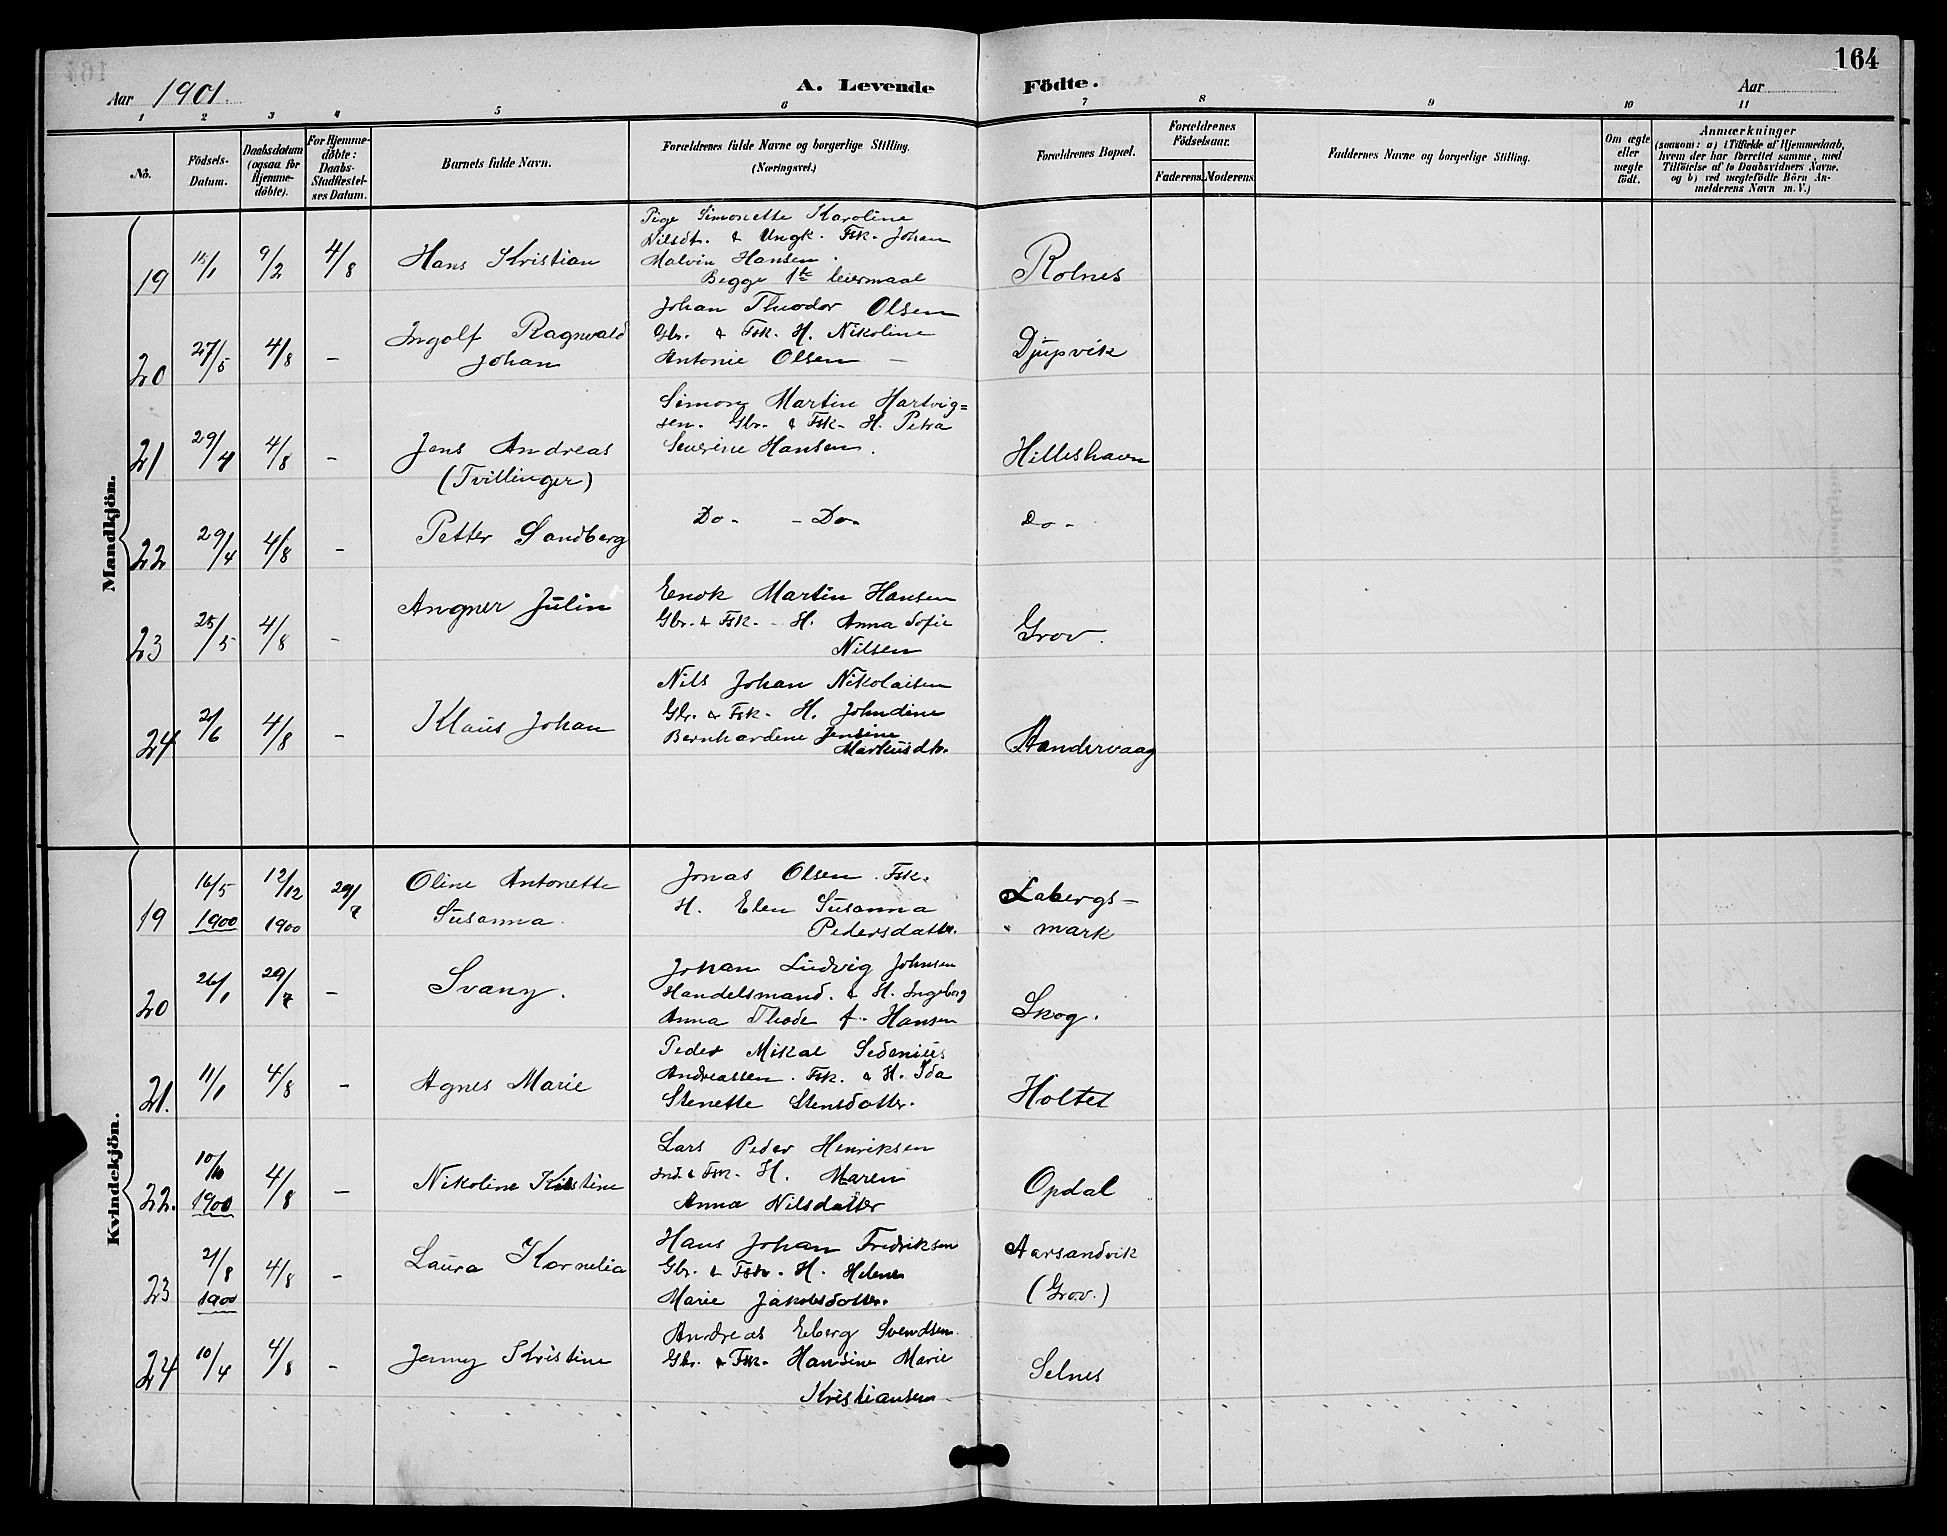 164
Aar 1901. A. Levende Födte. Aar
1 2 3 4 5 6 7 8 9 10 11
No.
Födsels-Datum.
Daabsdatum (ogsaa for Hjemme-döbte).
For Hjemme-döbte: Daabs-Stadfæstel-ses Datum.
Barnets fulde Navn.
Forældrenes fulde Navne og borgerlige Stilling.
(Næringsvei.)
Forældrenes Bopæl.
Forældrenes Födselsaar.
Faderens. Moderens.
Faddernes Navne og borgerlige Stilling.
Om ægte eller uægte födt.
Anmærkninger
(saasom: a) i Tilfælde af Hjemmedaab,
hvem der har forrettet samme, med
Tilföielse af to Daabsvidners Navne,
og b) ved uægtefödte Börn An-
melderens Navn m. V.)
Mandkjön.
Pige Simonette Karoline
Nilsdt. & Ungk. Fsk. Johan
19 15/1 9/2 4/8 Hans Kristian Malvin Hansen. Rolnes
Begge 1ste leiermaal
Johan Theodor Olsen
20 27/5 4/8 - Ingolf Ragnvald Gbr. & Fsk. H. Nikoline Djupvik
Johan Antonie Olsen -
Simon Martin Hartvig=
sen. Gbr. & Fsk. H. Petra
21 29/4 4/8 - Jens Andreas Severine Hansen. Hilleshavn
(Tvillinger)
22 29/4 4/8 - Petter Sandberg Do- -Do- Do-
Enok Martin Hansen
23 25/5 4/8 - Angner Julin Gbr. & Fsk. - H. Anna Sofie Grov.
Nilsen
Nils Johan Nikolaisen
24 2/6 4/8 - Klaus Johan Gbr. & Fsk. H. Johndine
Bernhardene Jensine Sandervaag
Markusdtr.
Kvindekjön.
19 16/5 1900 12/12 1900 29/7 Oline Antonette Jonas Olsen. Fsk. Labergs-
Susanna. H. Elen Susanna mark
Pedersdattr.
Johan Ludvig Johnsen
20 26/1 29/7 - Svany. Handelsmand. & H. Ingeborg Skog.
Anna Thode f. Hansen
Peder Mikal Sedenius
21. 11/1 4/8 - Agnes Marie Andreassen. Fsk. & H. Ida Holtet
Stenette Stensdatter.
Lars Peder Henriksen
22. 10/10 1900 4/8 - Nikoline Kristine Ind. & Fsk. H. Maren Opdal
Anna Nilsdatter
Hans Johan Fredriksen Aarsandvik
23 21/8 1900 4/8 - Laura Kornelia Gbr. & Fsk. H. Helene (Grov.)
Marie Jakobsdatter.
Andreas Eberg Svendsen.
24 10/4 4/8 - Jenny Kristine Gbr. & Fsk. Hansine Marie Selnes
Kristiansen